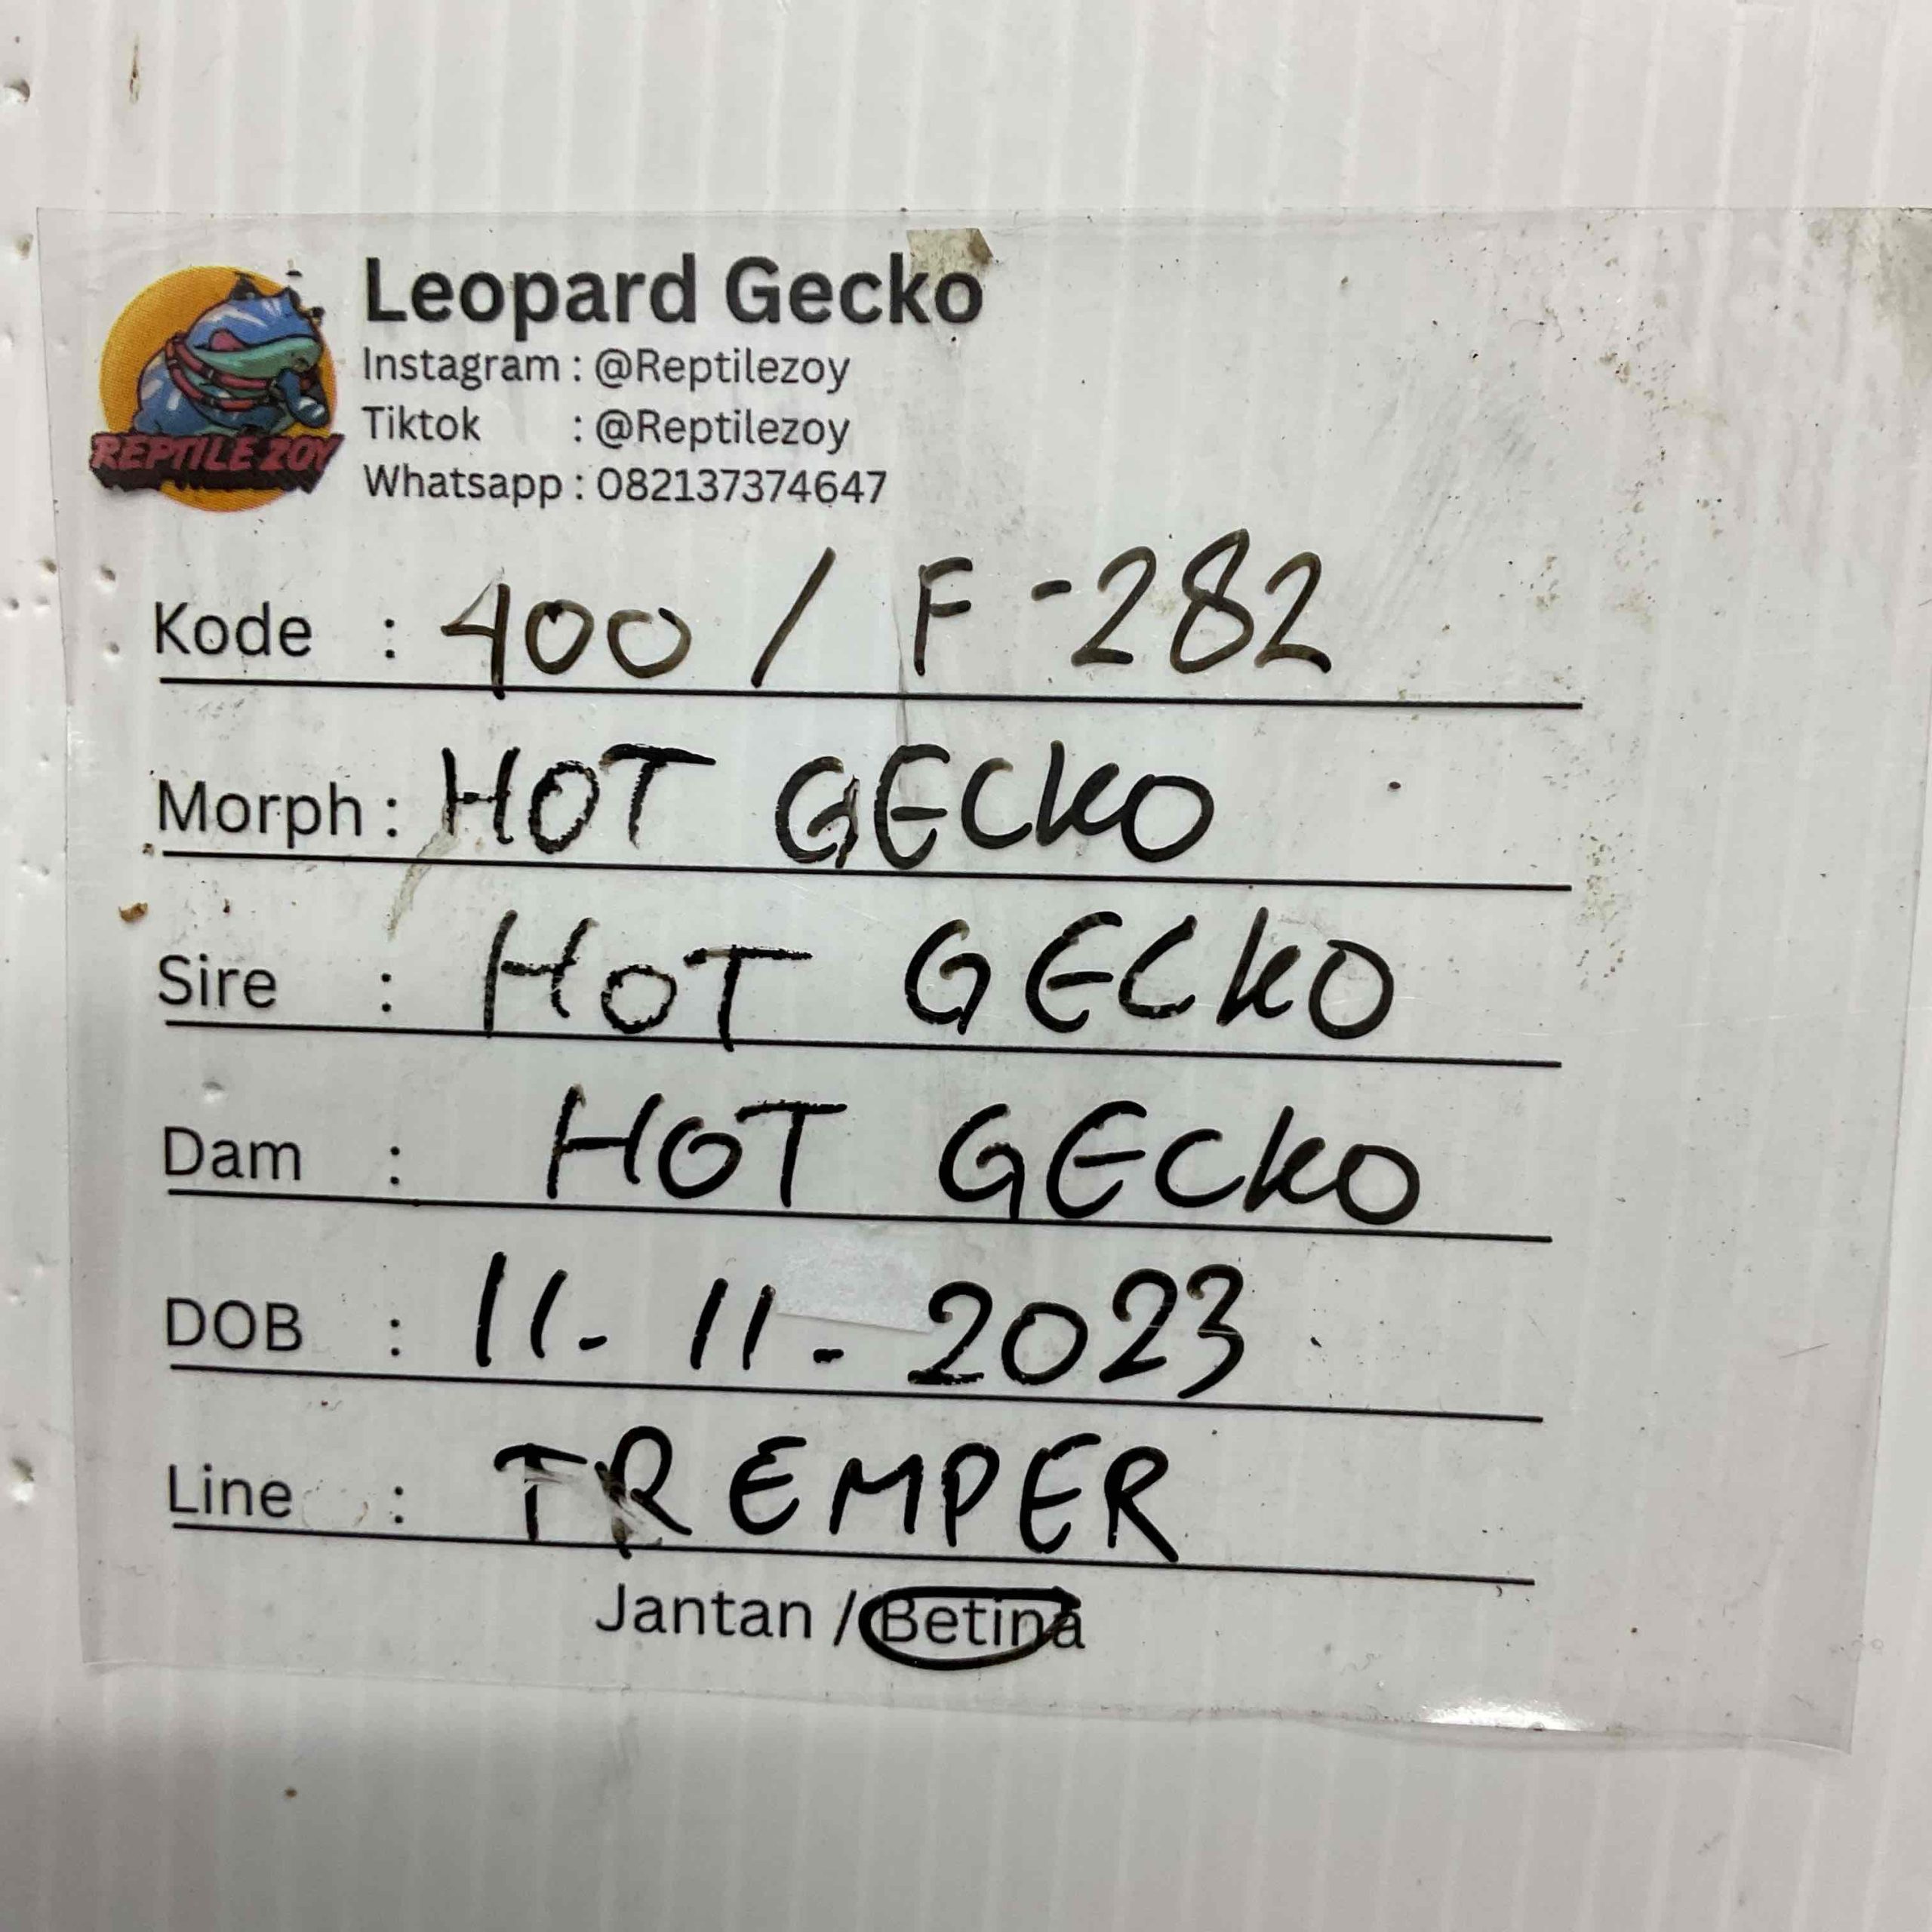 Leopard Gecko
Instagram : @Reptilezoy
Tiktok : @Reptilezoy
Whatsapp : 082137374647
REPTILE ZOY
Kode : 400 / F -282
Morph : HOT GECKO
Sire : HOT GECKO
Dam : HOT GECKO
DOB : 11. 11 - 2023
Line : TREMPER
Jantan / Betina